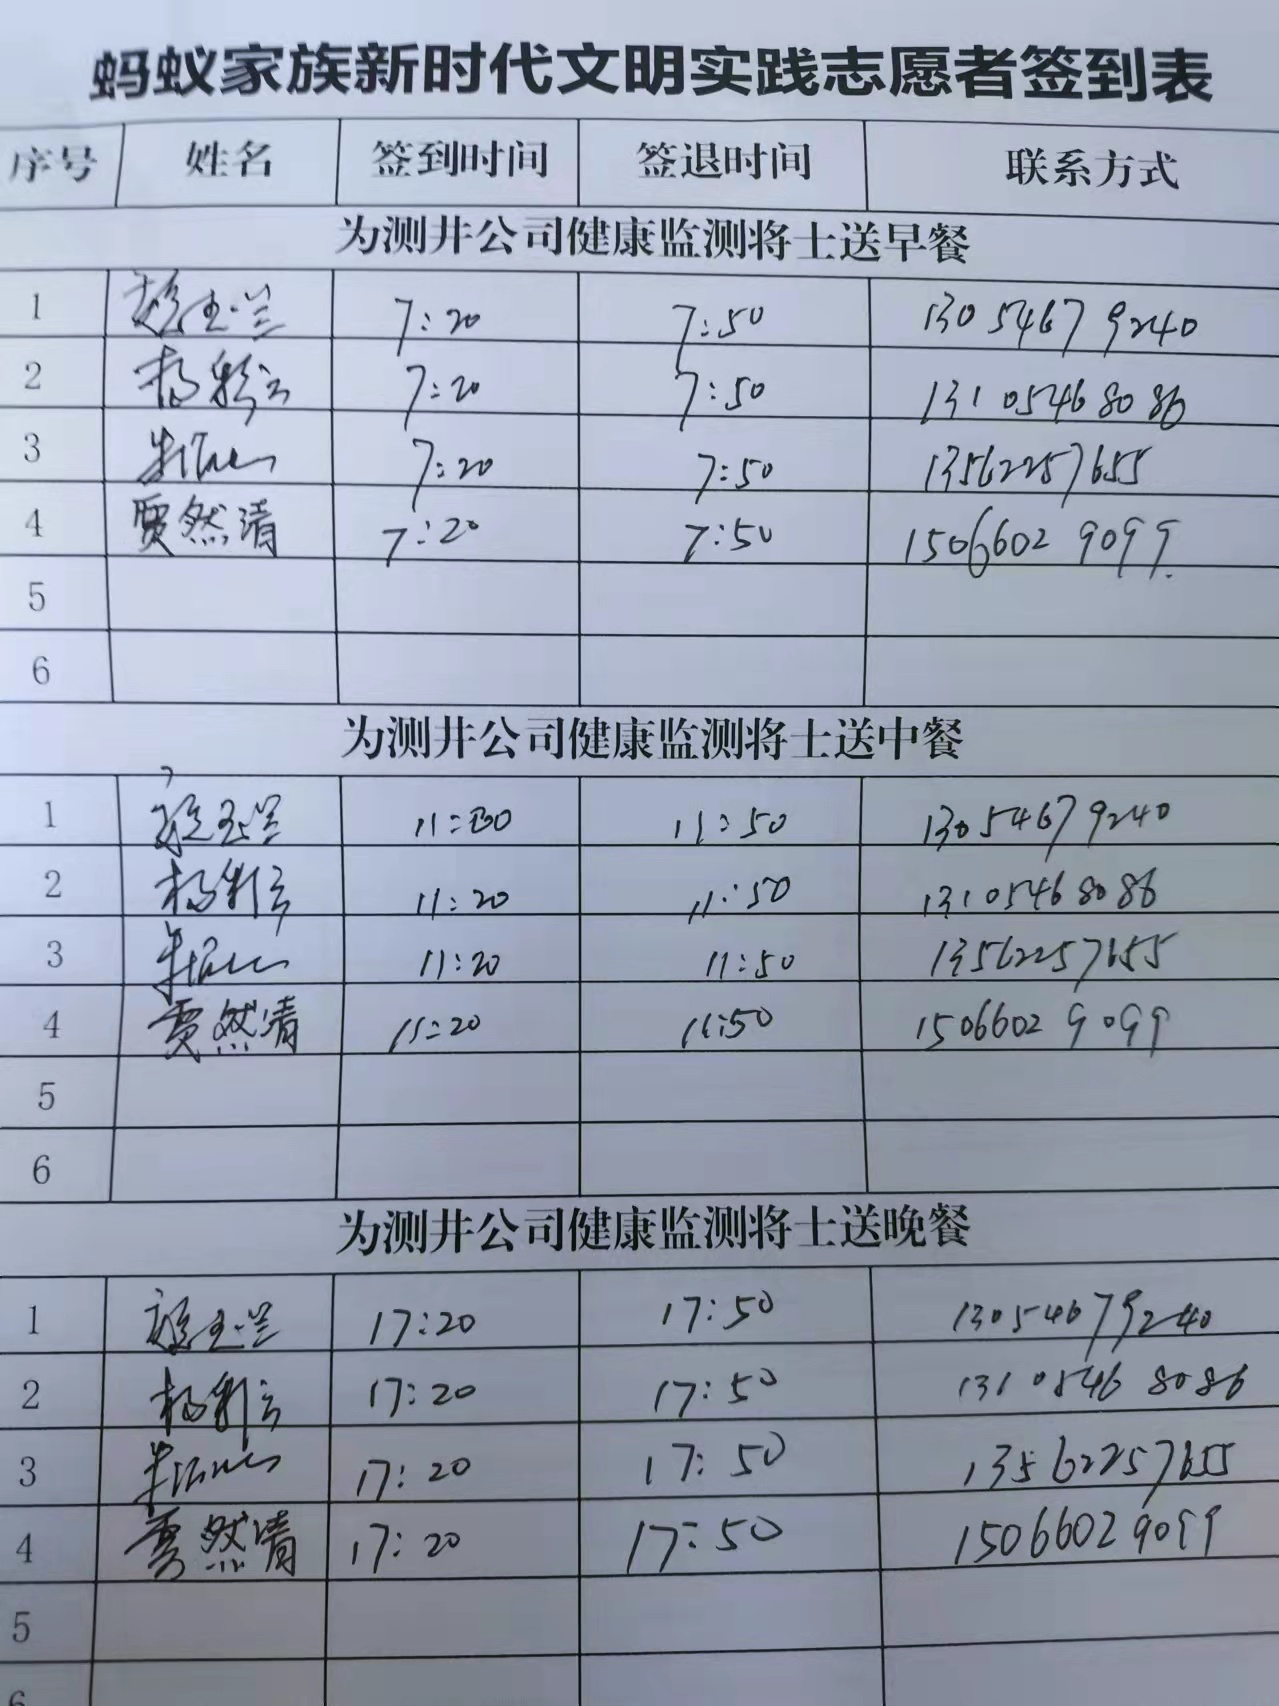 蚂蚁家族新时代文明实践志愿者签到表
序号 姓名 签到时间 签退时间 联系方式
为测井公司健康监测将士送早餐
1 玉兰 7:20 7:50 13054679240
2 杨 7:20 7:50 13105468086
3 朱 7:20 7:50 13562257655
4 贾然清 7:20 7:50 15066029099
5
6
为测井公司健康监测将士送中餐
1 玉兰 11:20 11:50 13054679240
2 杨 11:20 11:50 13105468086
3 朱 11:20 11:50 13562257655
4 贾然清 11:20 11:50 15066029099
5
6
为测井公司健康监测将士送晚餐
1 玉兰 17:20 17:50 13054679240
2 杨 17:20 17:50 13105468086
3 朱 17:20 17:50 13562257655
4 贾然清 17:20 17:50 15066029099
5
6